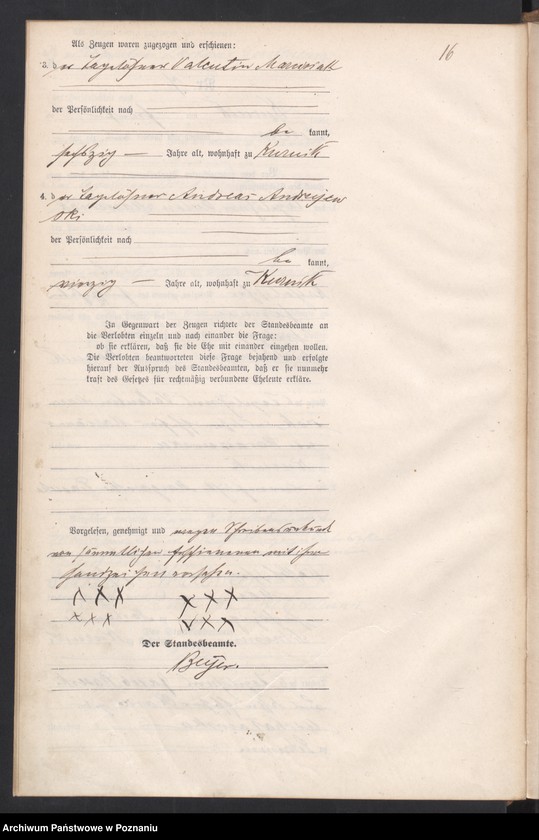 16
Als Zeugen waren zugezogen und erschienen:
3. der Tagelöhner Valentin
der Persönlichkeit nach
be kannt,
sechszig Jahre alt, wohnhaft zu Kurnik
4. der Tagelöhner Andreas Andrzejew
ski
der Persönlichkeit nach
be kannt,
vierzig Jahre alt, wohnhaft zu Kurnik
In Gegenwart der Zeugen richtete der Standesbeamte an
die Verlobten einzeln und nach einander die Frage:
ob sie erklären, daß sie die Ehe mit einander eingehen wollen.
Die Verlobten beantworteten diese Frage bejahend und erfolgte
hierauf der Ausspruch des Standesbeamten, daß er sie nunmehr
kraft des Gesetzes für rechtmäßig verbundene Eheleute erkläre.
Vorgelesen, genehmigt und wegen Schreibensunkunde
von sämmtlichen Erschienenen mit ihren
Handzeichen versehen.
XXX XXX
XXX XXX
Der Standesbeamte.
Beyer.
Archiwum Państwowe w Poznaniu